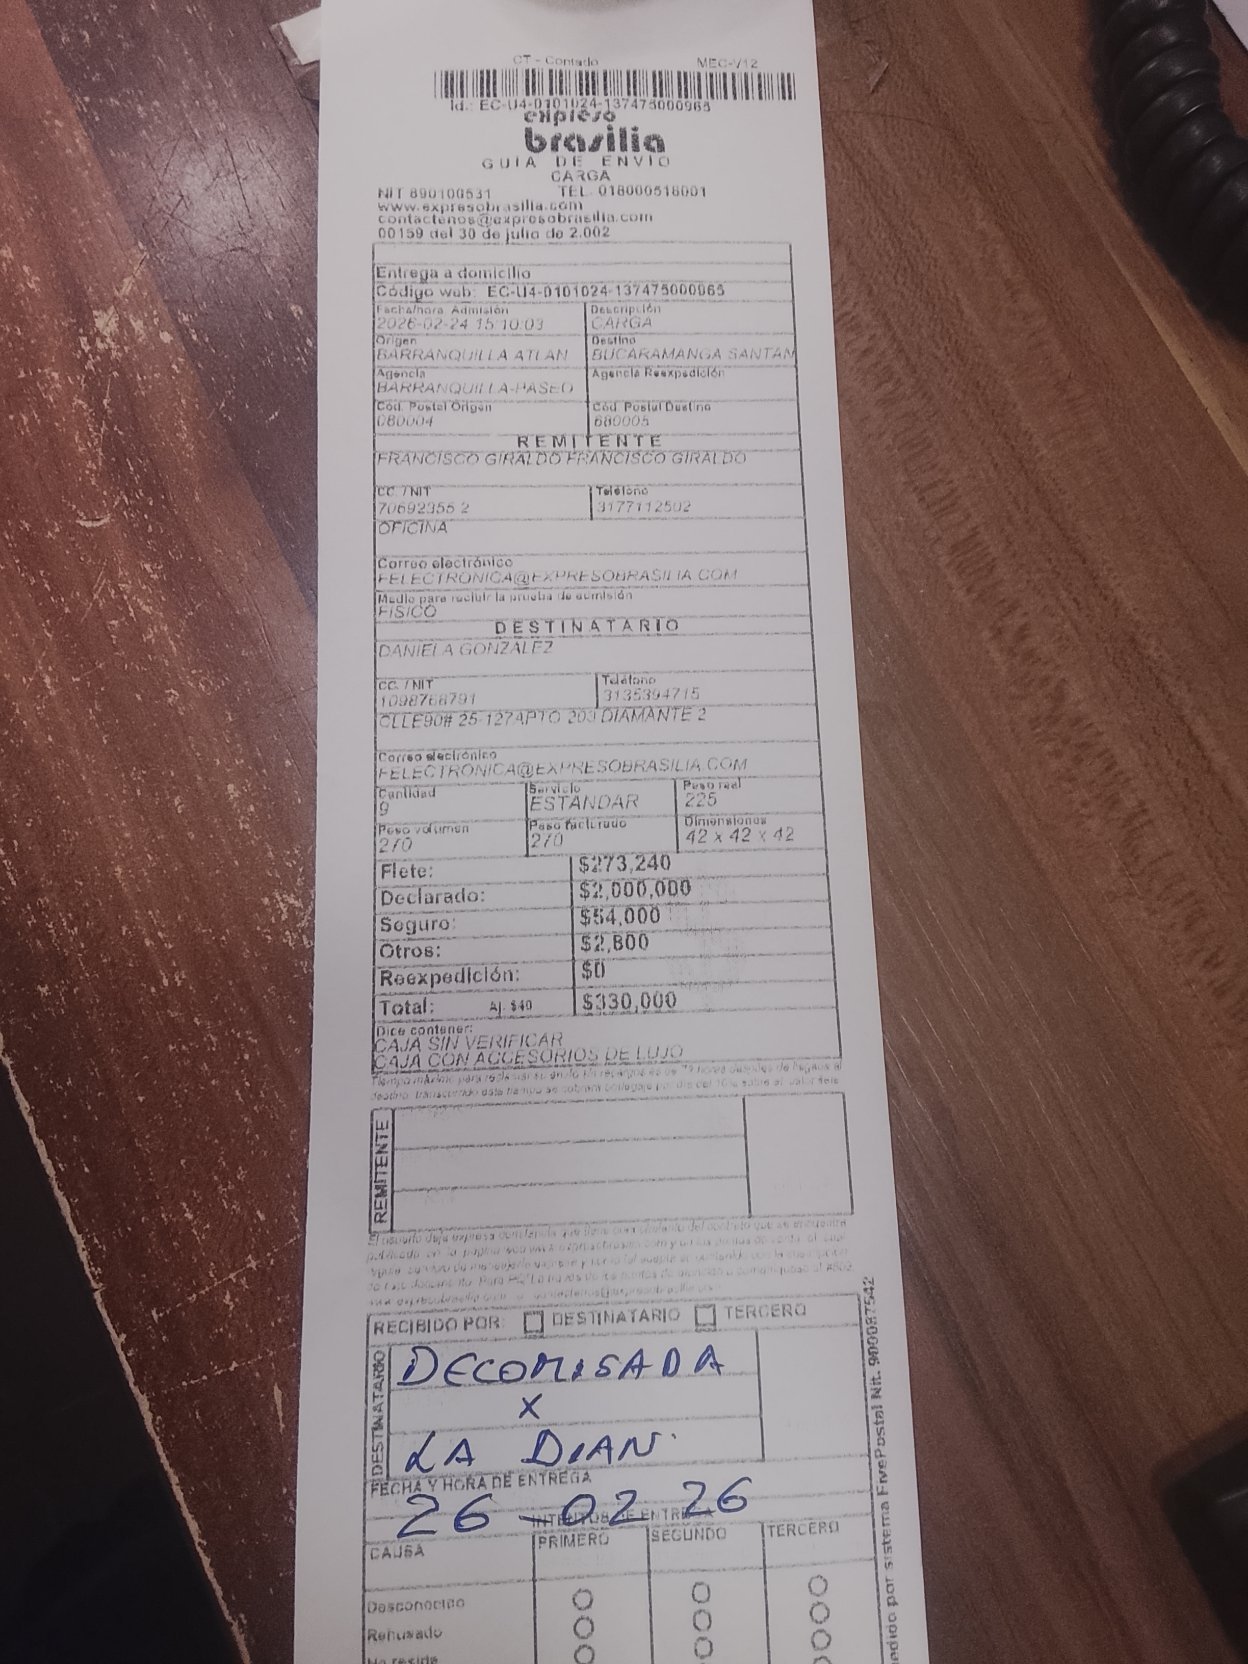 CT - Contado MEC-V12
Id.: EC-U4-0101024-137475000965
expreso
brasilia
GUIA DE ENVIO
CARGA
NIT 890100531 TEL. 018000518001
www.expresobrasilia.com
contactenos@expresobrasilia.com
00159 del 30 de julio de 2.002
Entrega a domicilio
Código web: EC-U4-0101024-137475000965
Fecha/hora Admisión Descripción
2026-02-24 15:10:03 CARGA
Origen Destino
BARRANQUILLA ATLAN BUCARAMANGA SANTAN
Agencia Agencia Reexpedición
BARRANQUILLA-PASEO
Cód. Postal Origen Cód. Postal Destino
080004 680005
REMITENTE
FRANCISCO GIRALDO FRANCISCO GIRALDO
CC. / NIT Teléfono
70692355 2 3177112502
OFICINA
Correo electrónico
FELECTRONICA@EXPRESOBRASILIA.COM
Medio para recibir la prueba de admisión
FISICO
DESTINATARIO
DANIELA GONZALEZ
CC. / NIT Teléfono
1098768791 3135394715
CLLE90# 25-127APTO 203 DIAMANTE 2
Correo electrónico
FELECTRONICA@EXPRESOBRASILIA.COM
Cantidad Servicio Peso real
9 ESTANDAR 225
Peso volumen Peso facturado Dimensiones
270 270 42 x 42 x 42
Flete: $273,240
Declarado: $2,000,000
Seguro: $54,000
Otros: $2,800
Reexpedición: $0
Total: Aj. $40 $330,000
Dice contener:
CAJA SIN VERIFICAR
CAJA CON ACCESORIOS DE LUJO
REMITENTE
RECIBIDO POR: DESTINATARIO TERCERO
DESTINATARIO
DECOMISADA
X
LA DIAN.
FECHA Y HORA DE ENTREGA
26-02 26
INTENTOS DE ENTREGA
CAUSA PRIMERO SEGUNDO TERCERO
Desconocido
Rehusado
No reside
edido por sistema FivePostal Nit. 900087542